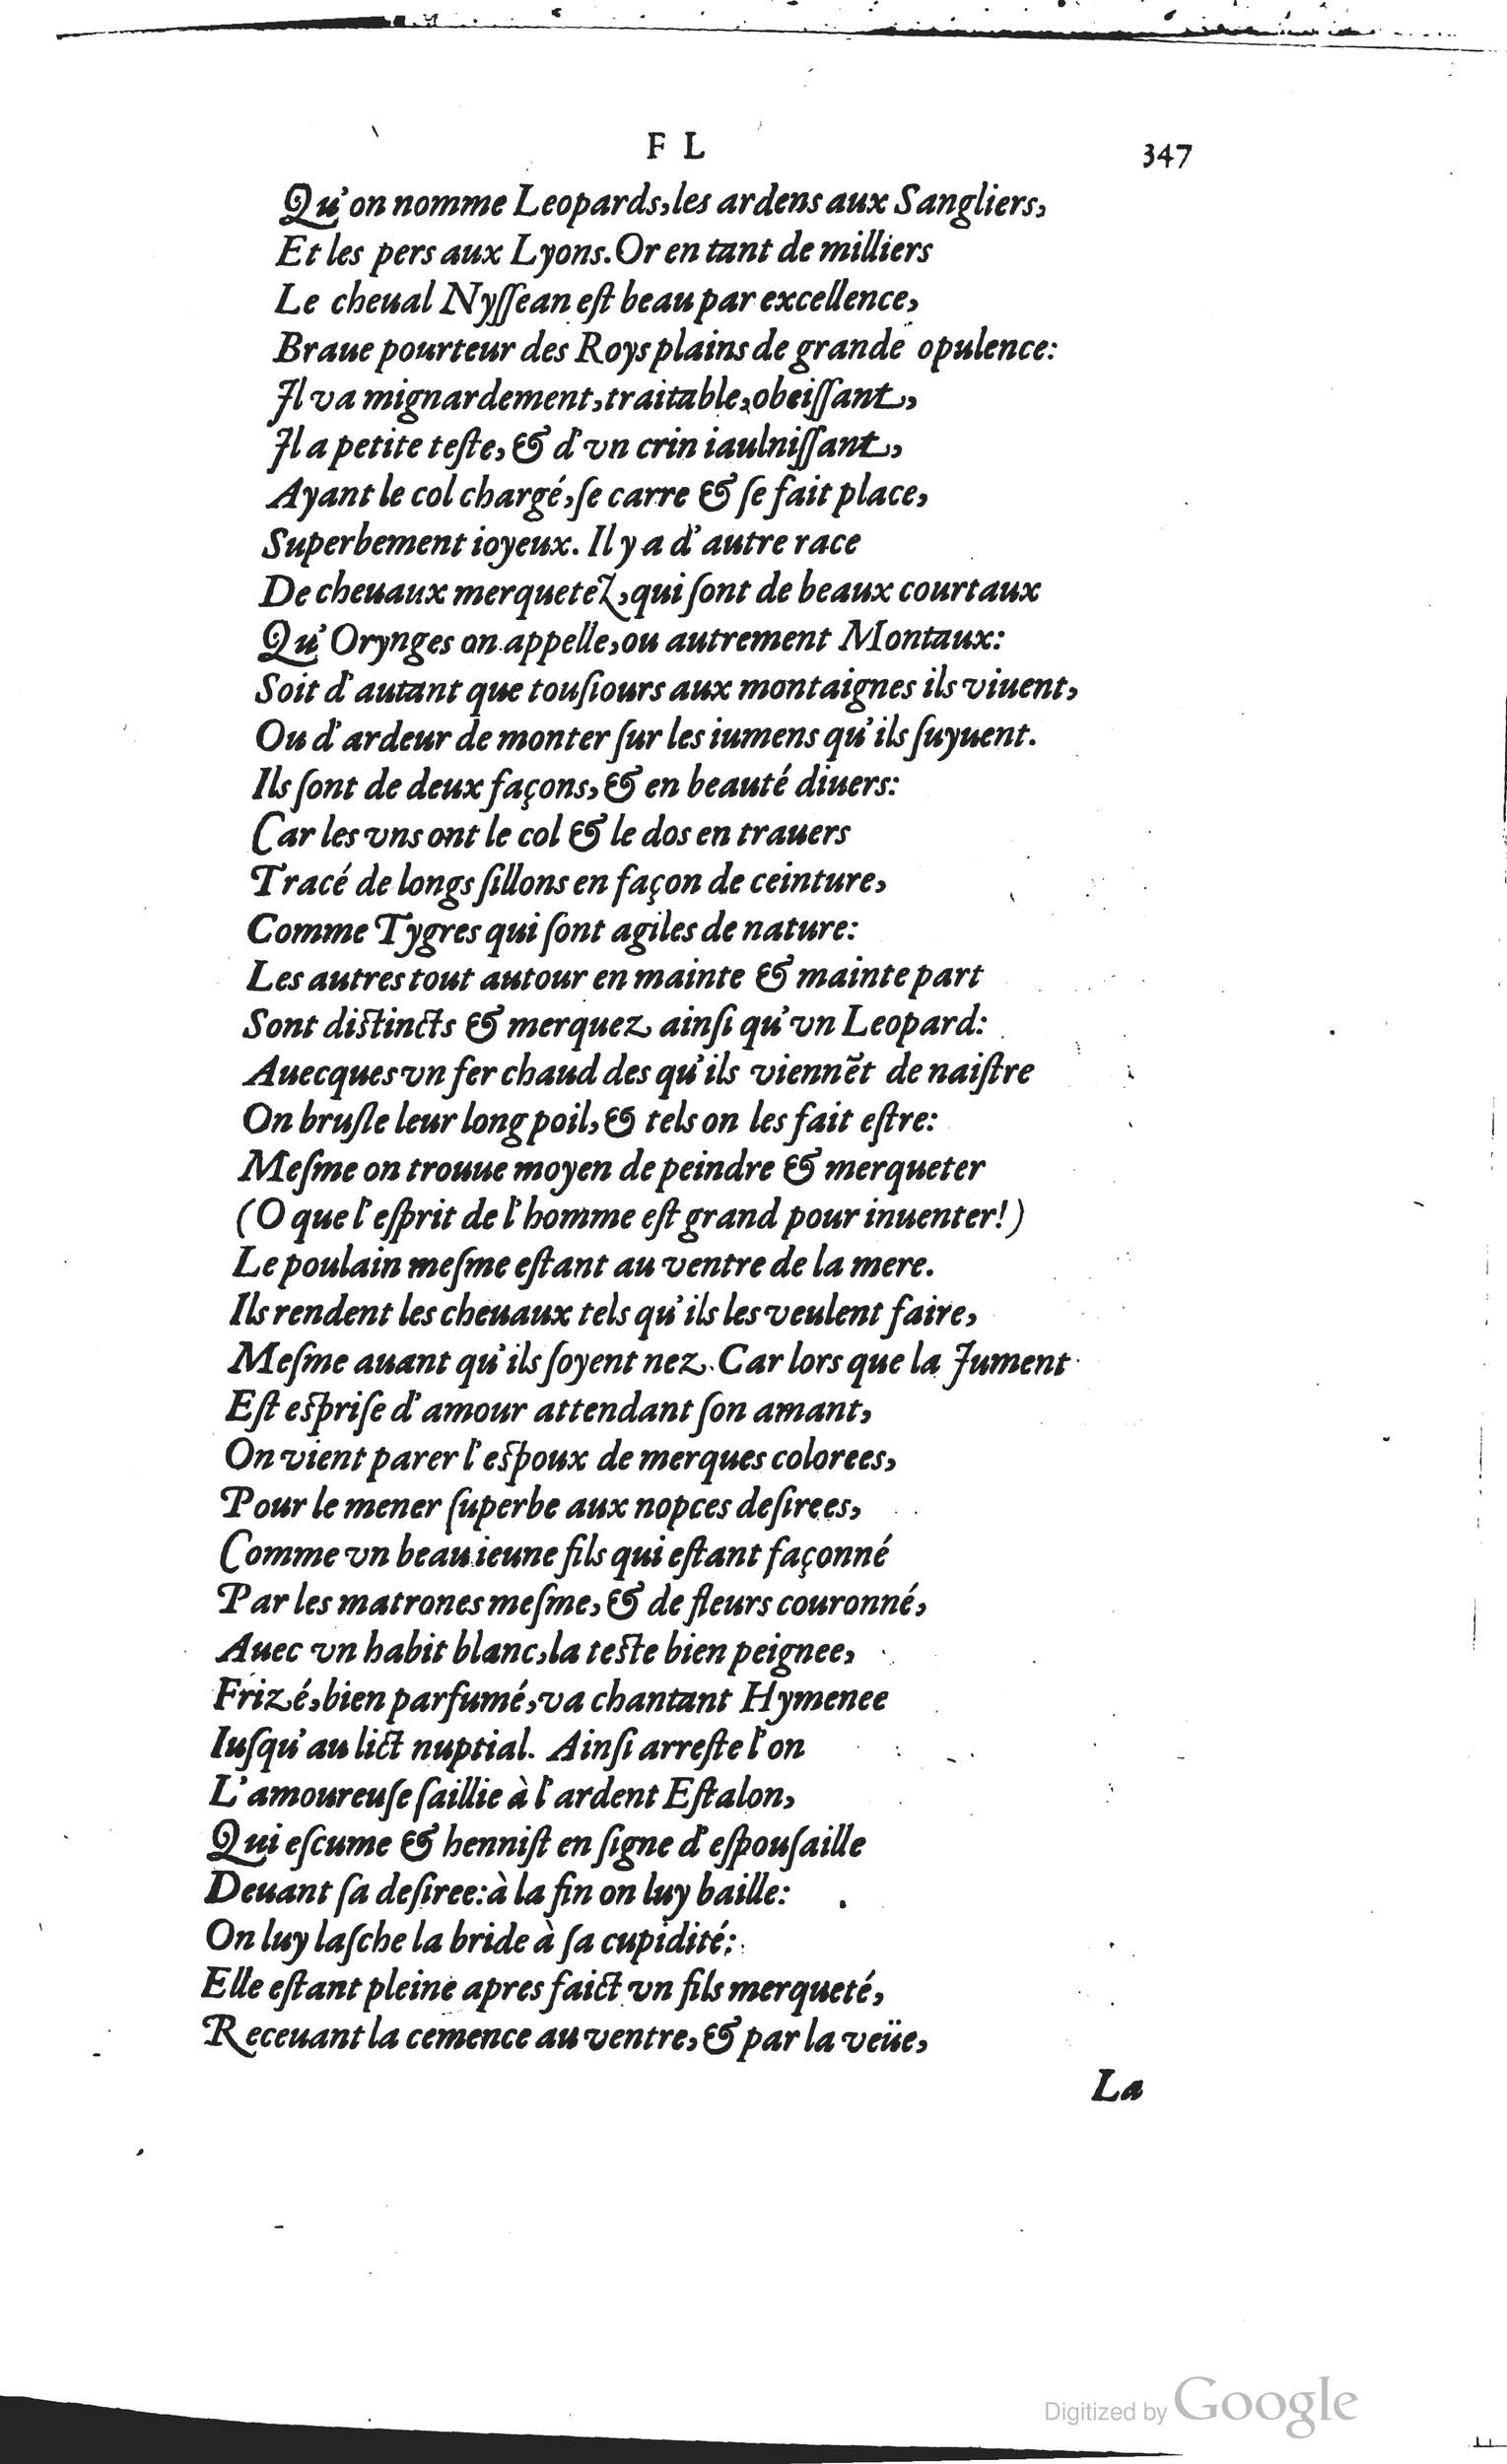 F L
347
Qu'on nomme Leopards, les ardens aux Sangliers,
Et les pers aux Lyons. Or en tant de milliers
Le cheual Nyſſean eſt beau par excellence,
Braue pourteur des Roys plains de grande opulence:
Il va mignardement, traitable, obeiſſant,
Il a petite teſte, & d'vn crin iaulniſſant,
Ayant le col chargé, ſe carre & ſe fait place,
Superbement ioyeux. Il y a d'autre race
De cheuaux merquetez, qui ſont de beaux courtaux
Qu'Orynges on appelle, ou autrement Montaux:
Soit d'autant que touſiours aux montaignes ils viuent,
Ou d'ardeur de monter ſur les iumens qu'ils ſuyuent.
Ils ſont de deux façons, & en beauté diuers:
Car les vns ont le col & le dos en trauers
Tracé de longs ſillons en façon de ceinture,
Comme Tygres qui ſont agiles de nature:
Les autres tout autour en mainte & mainte part
Sont diſtincts & merquez ainſi qu'vn Leopard:
Auecques vn fer chaud des qu'ils viennẽt de naiſtre
On bruſle leur long poil, & tels on les fait eſtre:
Meſme on trouue moyen de peindre & merqueter
(O que l'eſprit de l'homme eſt grand pour inuenter!)
Le poulain meſme eſtant au ventre de la mere.
Ils rendent les cheuaux tels qu'ils les veulent faire,
Meſme auant qu'ils ſoyent nez. Car lors que la Jument
Eſt eſpriſe d'amour attendant ſon amant,
On vient parer l'eſpoux de merques colorees,
Pour le mener ſuperbe aux nopces deſirees,
Comme vn beau ieune fils qui eſtant façonné
Par les matrones meſme, & de fleurs couronné,
Auec vn habit blanc, la teſte bien peignee,
Frizé, bien parfumé, va chantant Hymenee
Iuſqu'au lict nuptial. Ainſi arreſte l'on
L'amoureuſe ſaillie à l'ardent Eſtalon,
Qui eſcume & henniſt en ſigne d'eſpouſaille
Deuant ſa deſiree: à la fin on luy baille:
On luy laſche la bride à ſa cupidité:
Elle eſtant pleine apres faict vn fils merqueté,
Receuant la cemence au ventre, & par la veüe,
La
Digitized by Google